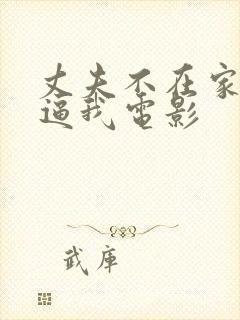 丈夫不在家
逼我电影
武库